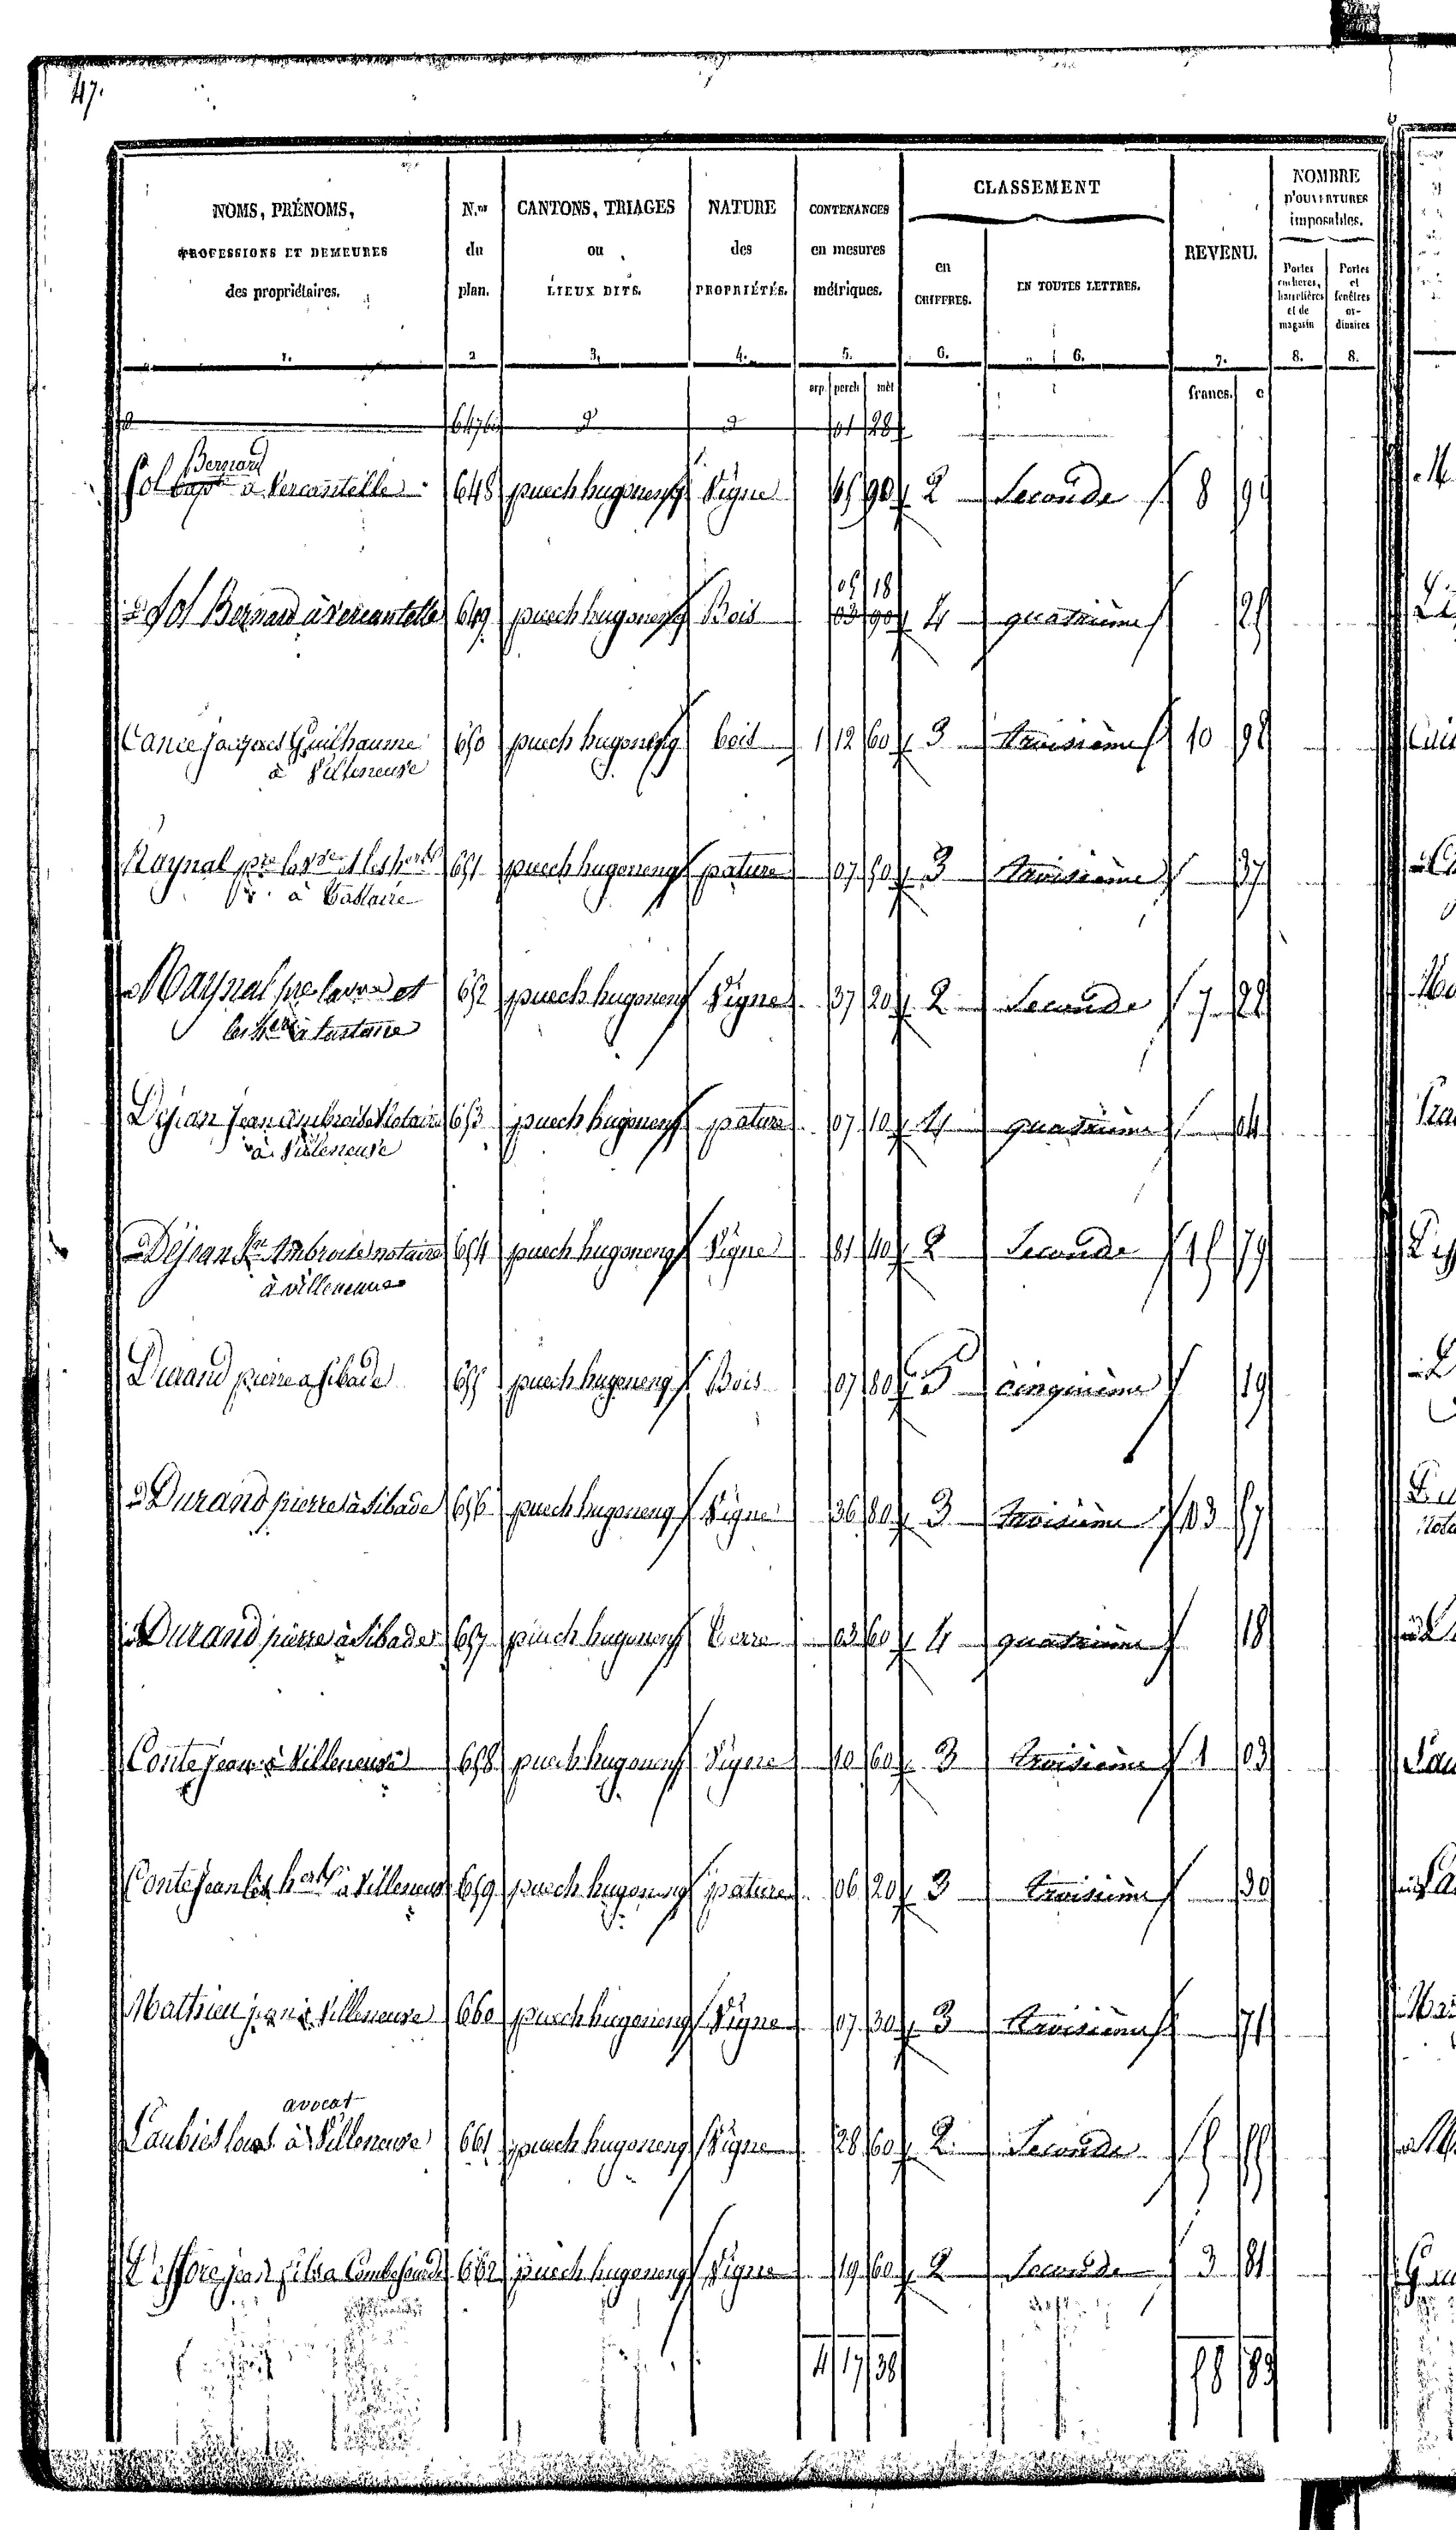 47.
NOMS, PRÉNOMS, PROFESSIONS ET DEMEURES des propriétaires. 1.
N.os du plan. 2
CANTONS, TRIAGES ou LIEUX DITS. 3.
NATURE des PROPRIÉTÉS. 4.
CONTENANCES en mesures métriques. 5.
CLASSEMENT
en CHIFFRES. 6.
EN TOUTES LETTRES. 6.
REVENU. 7.
NOMBRE D'OUVERTURES imposables.
Portes cochères, charretières et de magasin 8.
Portes et fenêtres ordinaires 8.
arp. perch mèt francs. c
d 647bis d d 01 28
Bernard
Sol à Vercantelle 648 puech hugoneng Vigne 45 90 2 Seconde 8 90
05 18
d Sol Bernard à Vercantelle 649 puech hugoneng Bois 03 90 4 quatrième 25
Cance jacques Guilhaume 650 puech hugoneng bois 1 12 60 3 troisième 10 98
à Villeneuve
Raynal pre la vve et les hers 651 puech hugoneng pature 07 50 3 troisième 37
à
d Raynal pre la vve et 652 puech hugoneng Vigne 37 20 2 Seconde 7 22
les hers à
Dejean jean ambroise Notaire 653 puech hugoneng pature 07 10 4 quatrième 04
à Villeneuve
d Dejean Jn Ambroise notaire 654 puech hugoneng Vigne 81 40 2 Seconde 15 79
à villeneuve
Durand pierre a sibade 655 puech hugoneng Bois 07 80 5 cinquième 19
d Durand pierre à Sibade 656 puech hugoneng Vigne 36 80 3 troisième 3 57
d Durand pierre à Sibade 657 puech hugoneng Terre 03 60 4 quatrième 18
Conte jean à Villeneuve 658 puech hugoneng Vigne 10 60 3 troisième 1 03
Conte jean les hers à Villeneuve 659 puech hugoneng pature 06 20 3 troisième 30
Mathieu jean à Villeneuve 660 puech hugoneng Vigne 07 30 3 troisième 71
avocat
Caubiet louis à Villeneuve 661 puech hugoneng Vigne 28 60 2 Seconde 5 55
jean fils a 662 puech hugoneng Vigne 19 60 2 Seconde 3 81
4 17 38 58 89